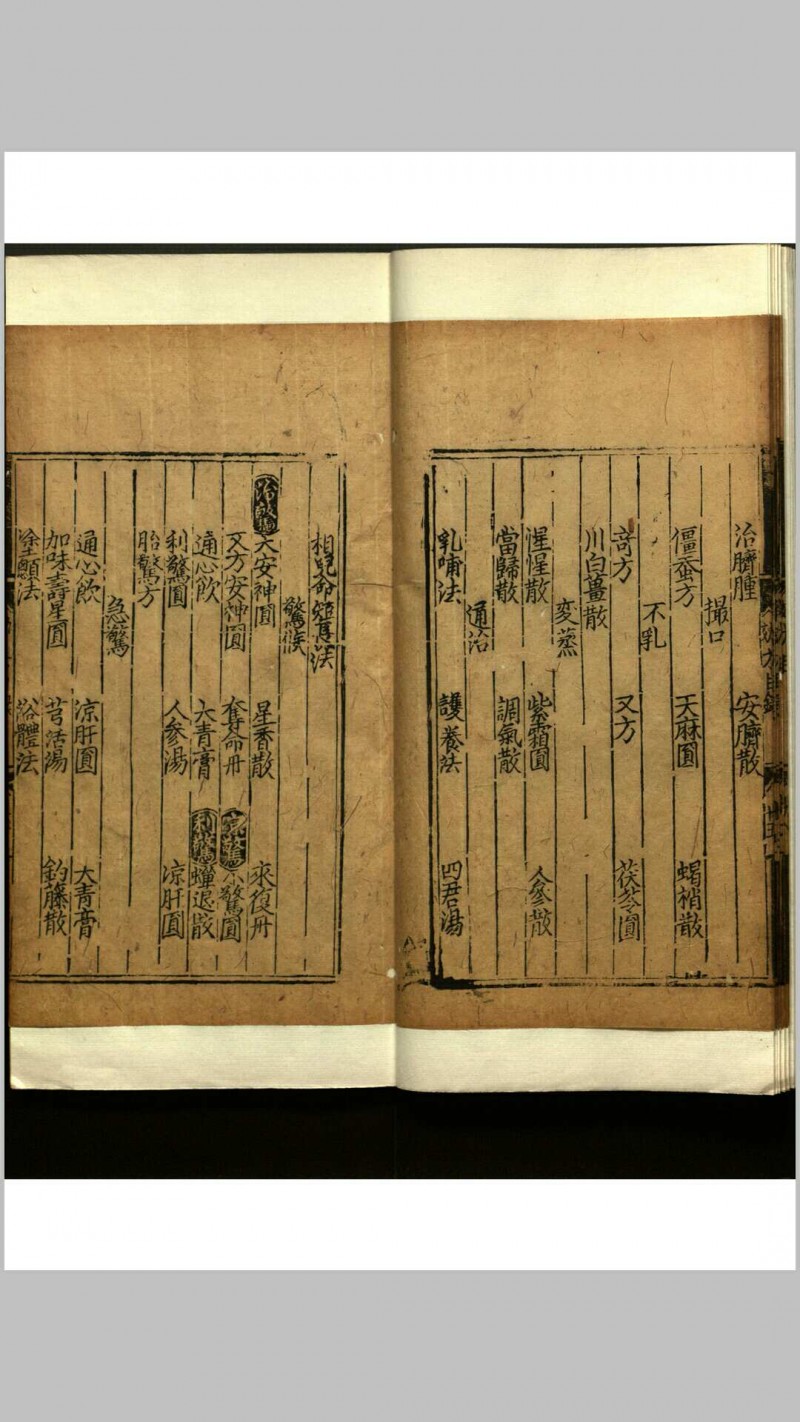 治臍腫 安臍散
撮口
僵蚕方 天麻圓 蝎梢散
不乳
苛方 又方 茯苓圓
川白薑散
変蒸
惺惺散 紫霜圓 人參散
當歸散 調氣散
通治
乳哺法 護養法 四君湯
相兒命短長法
驚候
大安神圓 星香散 來復丹
又方安神圓 奪命丹 驚圓
通心飲 大青膏 蟬退散
利驚圓 人參湯 凉肝圓
胎驚方
急驚
通心飲 凉肝圓 大青膏
加味壽星圓 芎活湯 釣藤散
塗顖法 浴體法